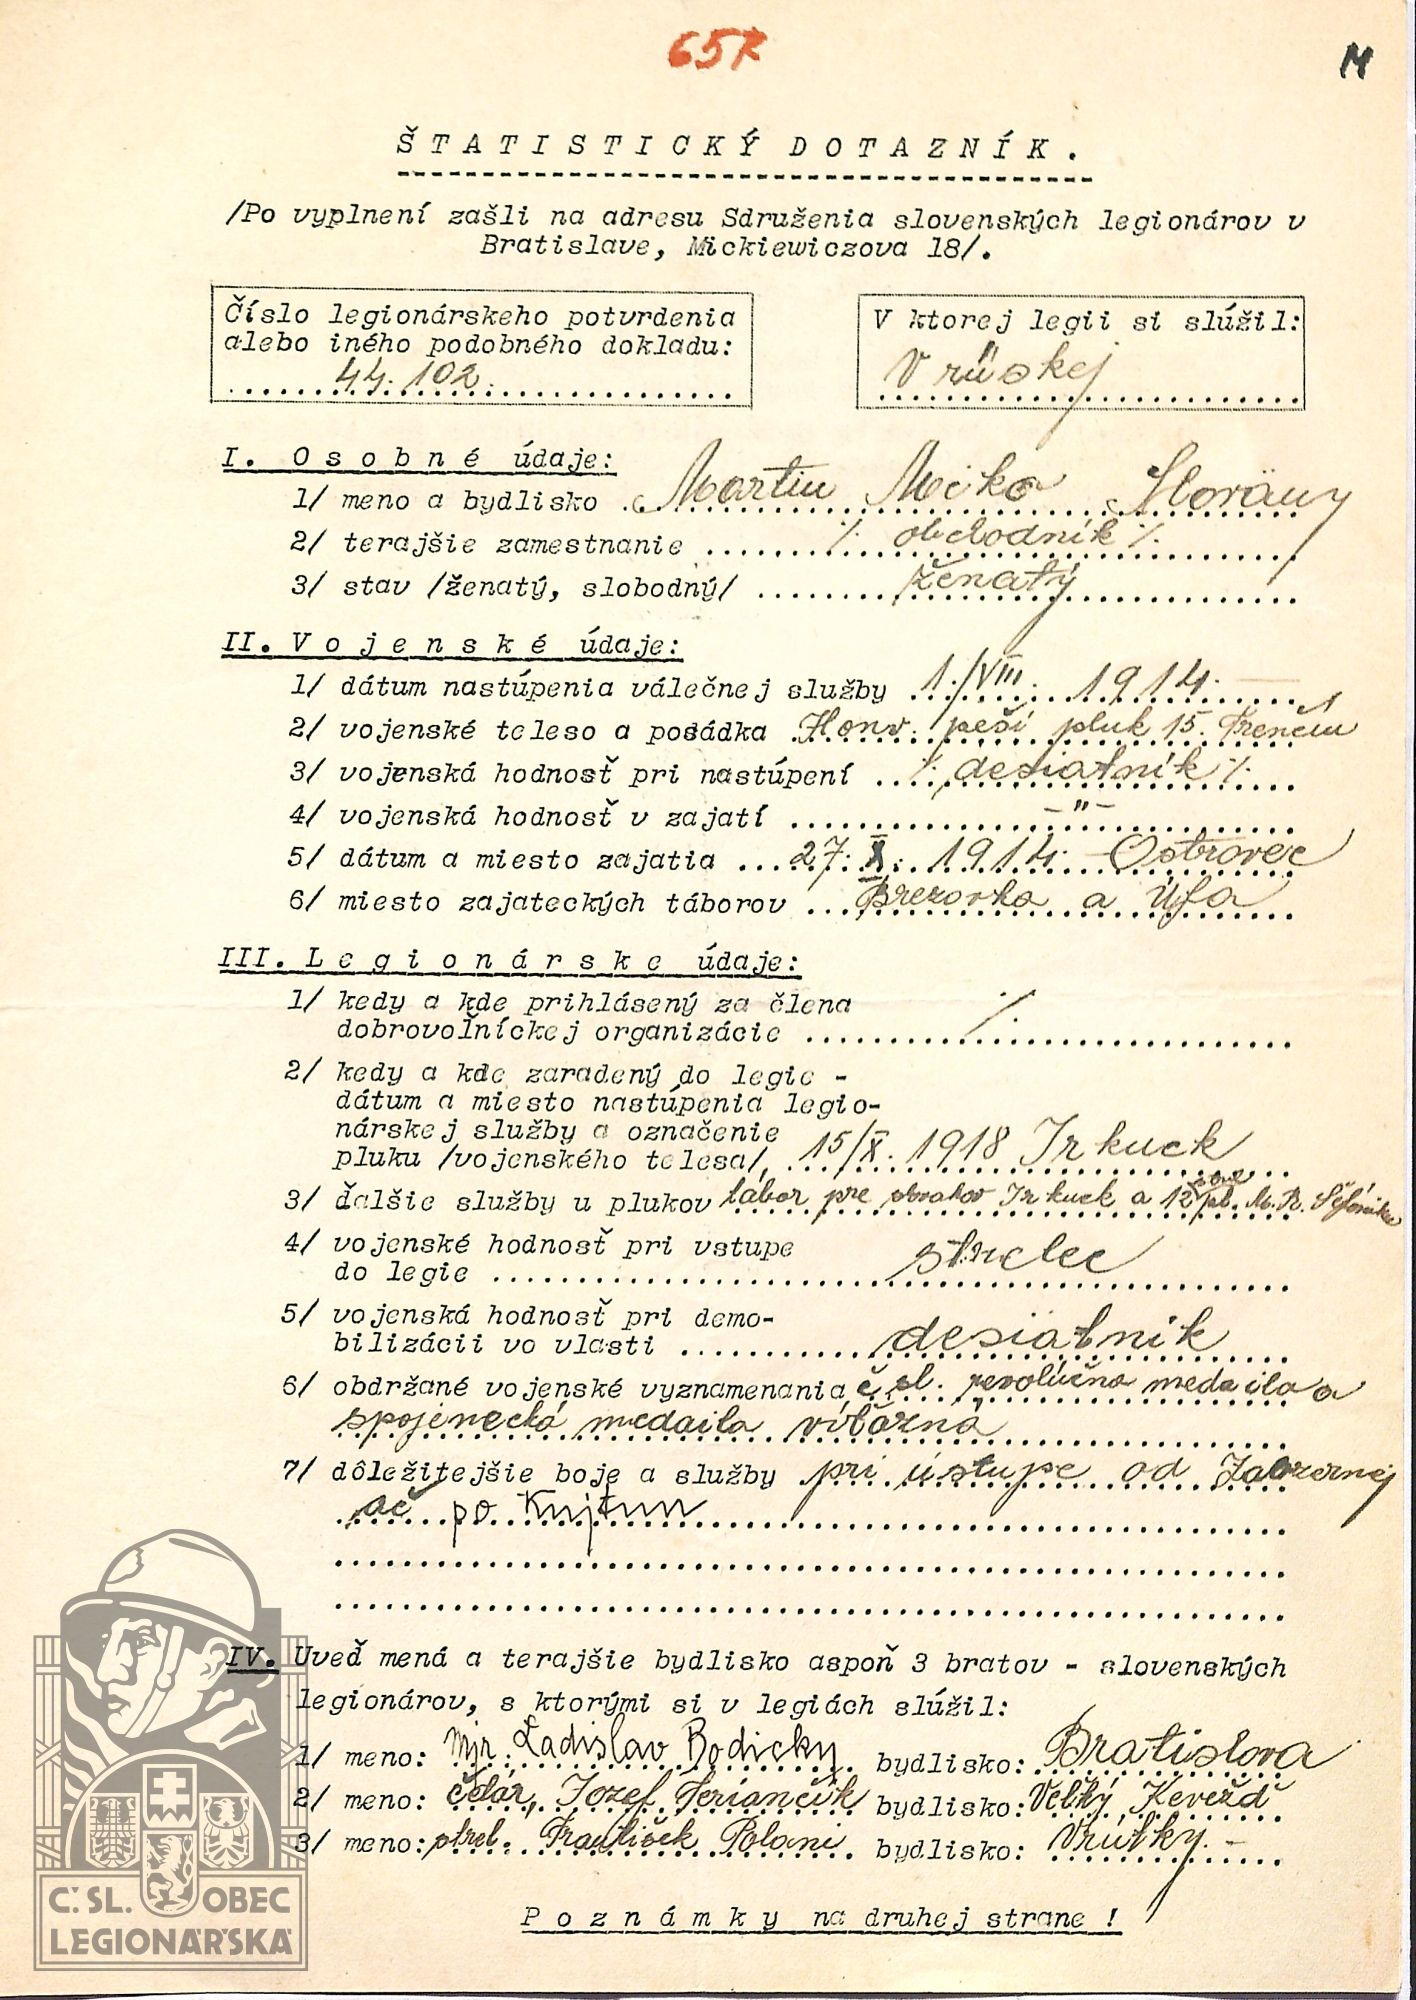 657
M
ŠTATISTICKÝ DOTAZNÍK.
/Po vyplnení zašli na adresu Sdruženia slovenských legionárov v
Bratislave, Mickiewiczova 18/.
Číslo legionárskeho potvrdenia
alebo iného podobného dokladu:
44.102.
V ktorej legii si slúžil:
V rúskej
I. Osobné údaje:
1/ meno a bydlisko Martin Miko Horäny
2/ terajšie zamestnanie ./. obchodník ./.
3/ stav /ženatý, slobodný/ ženatý
II. Vojenské údaje:
1/ dátum nastúpenia válečnej služby 1./VIII. 1914.
2/ vojenské teleso a posádka Honv. peší pluk 15. Trenčín
3/ vojenská hodnosť pri nastúpení ./. desiatnik ./.
4/ vojenská hodnosť v zajatí -"-
5/ dátum a miesto zajatia 27. X. 1914. Ostrovec
6/ miesto zajateckých táborov Brezovka a Úfa
III. Legionárske údaje:
1/ kedy a kde prihlásený za člena
dobrovoľníckej organizácie ./.
2/ kedy a kde zaradený do legie -
dátum a miesto nastúpenia legio-
nárskej služby a označenie
pluku /vojenského telesa/, 15/X. 1918 Irkuck
3/ ďalšie služby u plukov tábor pre Irkuck a 12 pl. M. R. Štefánika
4/ vojenské hodnosť pri vstupe
do legie strelec
5/ vojenská hodnosť pri demo-
bilizácii vo vlasti desiatnik
6/ obdržané vojenské vyznamenania čsl. revolúčna medaila a
spojenecká medaila víťazná
7/ dôležitejšie boje a služby pri ústupe od
až po Kujtun
IV. Uveď mená a terajšie bydlisko aspoň 3 bratov - slovenských
legionárov, s ktorými si v legiách slúžil:
1/ meno: Mjr. Ladislav Bodicky bydlisko: Bratislava
2/ meno: čatár, Jozef Feriančík bydlisko: Veľký Kevežd
3/ meno: strel. František Polani bydlisko: Vrútky. -
Poznámky na druhej strane !
Č SL. OBEC
LEGIONÁŘSKÁ